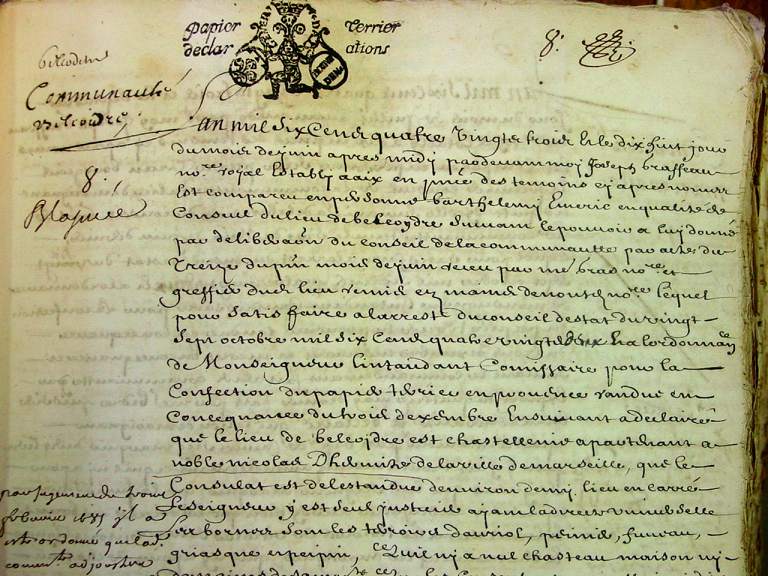 papier terrier
declar ations
8.
Communauté
Belcodre
8.
L'an mil six Cens quatre vingts trois et le dix huit jour
du mois de juin apres midy pardevant moy Joseph
no.re royal estably a aix en p.nce des temoins cy apres nommes
est compareu en personne barthelemi Emeric en qualité de
Consul du lieu de belcodre suivant le pouvoir a luy donné
par deliberaôn du conseil de la communautte par acte du
Treize du p.nt mois de juin receu par me bras no.re et
greffier dud. lieu remis ez mains de nousd. no.re lequel
pour satisfaire a larrest du conseil destat du vingt
sept octobre mil six Cens quatre vingts deux et a lordonnan.ce
de Monseigneur lintandant Comissaire pour la
Confection du papier terrier en provence randue en
Consequance du trois dexembre Ensuivant a declairé
que le lieu de belcodre est chastellenie apartenant a
noble nicolas Dhermite de la ville de marseille, que le
Consulat est de lestandue denviron demi lieu en carré
le seigneur y est seul justicier ayant la directe universelle
et bornes sont les terroirs dauriol, peinie, fuveau,
griasque et peipin, Quil ni a nul chasteau maison ni
par jugement du
1685 il a
esté ordonné que la
comm.té adjoustera